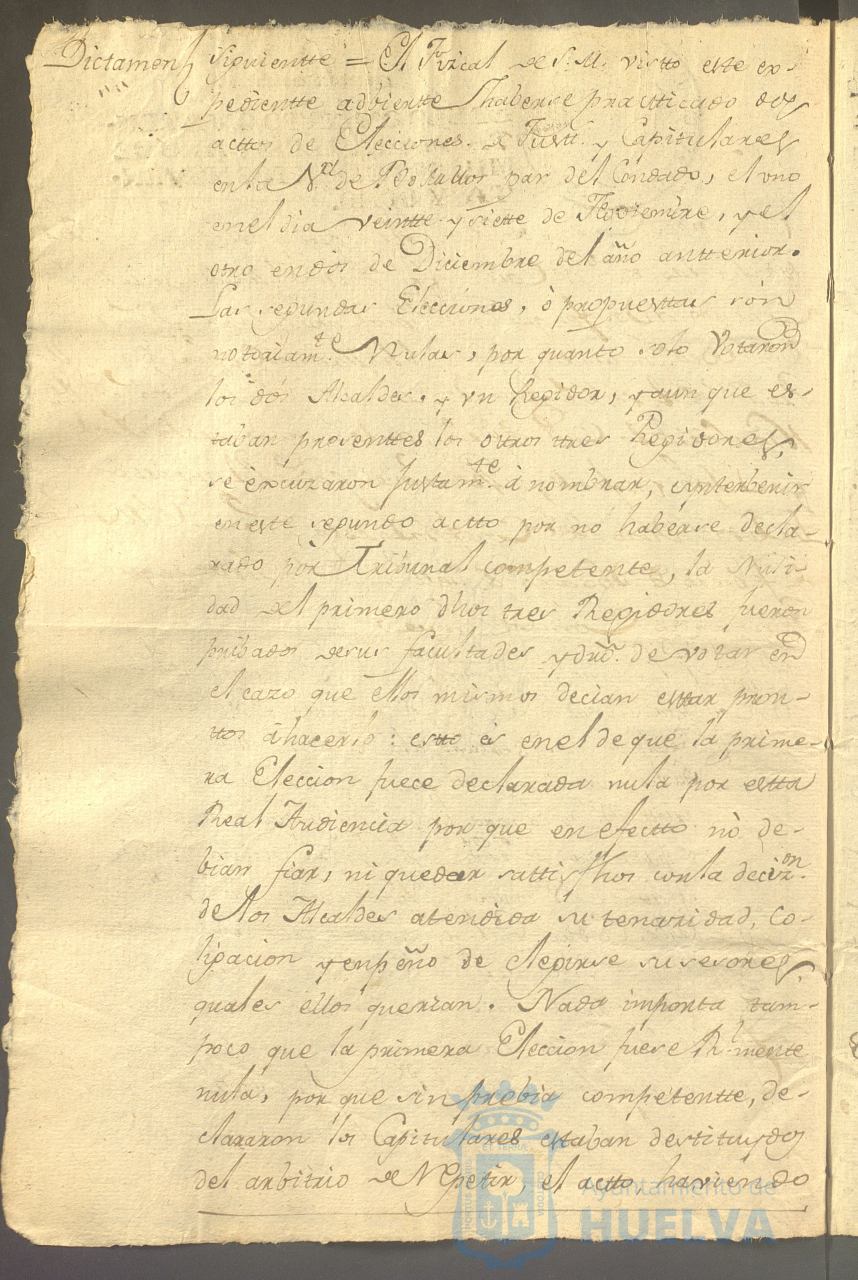 Dictamen siguientte = El Fiscal de S. M. visto este ex-
pedientte adviertte haberse practticado dos
acttos de Elecciones de Justª y Capitulares
en la Vª de Bollullos par del Condado, el uno
en el dia veintte y siette de Noviembre, y el
otro en dos de Diciembre del año antterior.
Las segundas Elecciones, ò propuesttas són
notoriamte Nulas, por quanto solo Votaron
los dós Alcaldes y un Regidor, y aunque es-
taban presenttes los ottros ttres Regidores,
se èxcuzaron justamte á nombrar, è ynterbenir
en este segundo actto por no habérse decla-
rado por Tribunal competente, la Nuli-
dad del primero dhos tres Regidores fueron
pribados de sus facultades y dro de votar en
el cazo que ellos mismos decian esttar pron-
ttos áhacerlo: estto és en el de que la prime-
ra Eleccion fuece declarada nula por estta
Real Audiencia por que en efectto nó de-
bian fiar, ni quedar sattisfhos con la decizon
de los Alcaldes atendida su tenazidad, Co-
ligacion y enpeño de elegirse susesores
quales ellos querian. Nada importa tam-
poco que la primera Eleccion fuese Rlmente
nula, por que sin probia competentte, de-
clararon los Capitulares estaban destituidos
del arbitrio de Repetir el actto, haviéndo
Ayuntamiento de
HUELVA